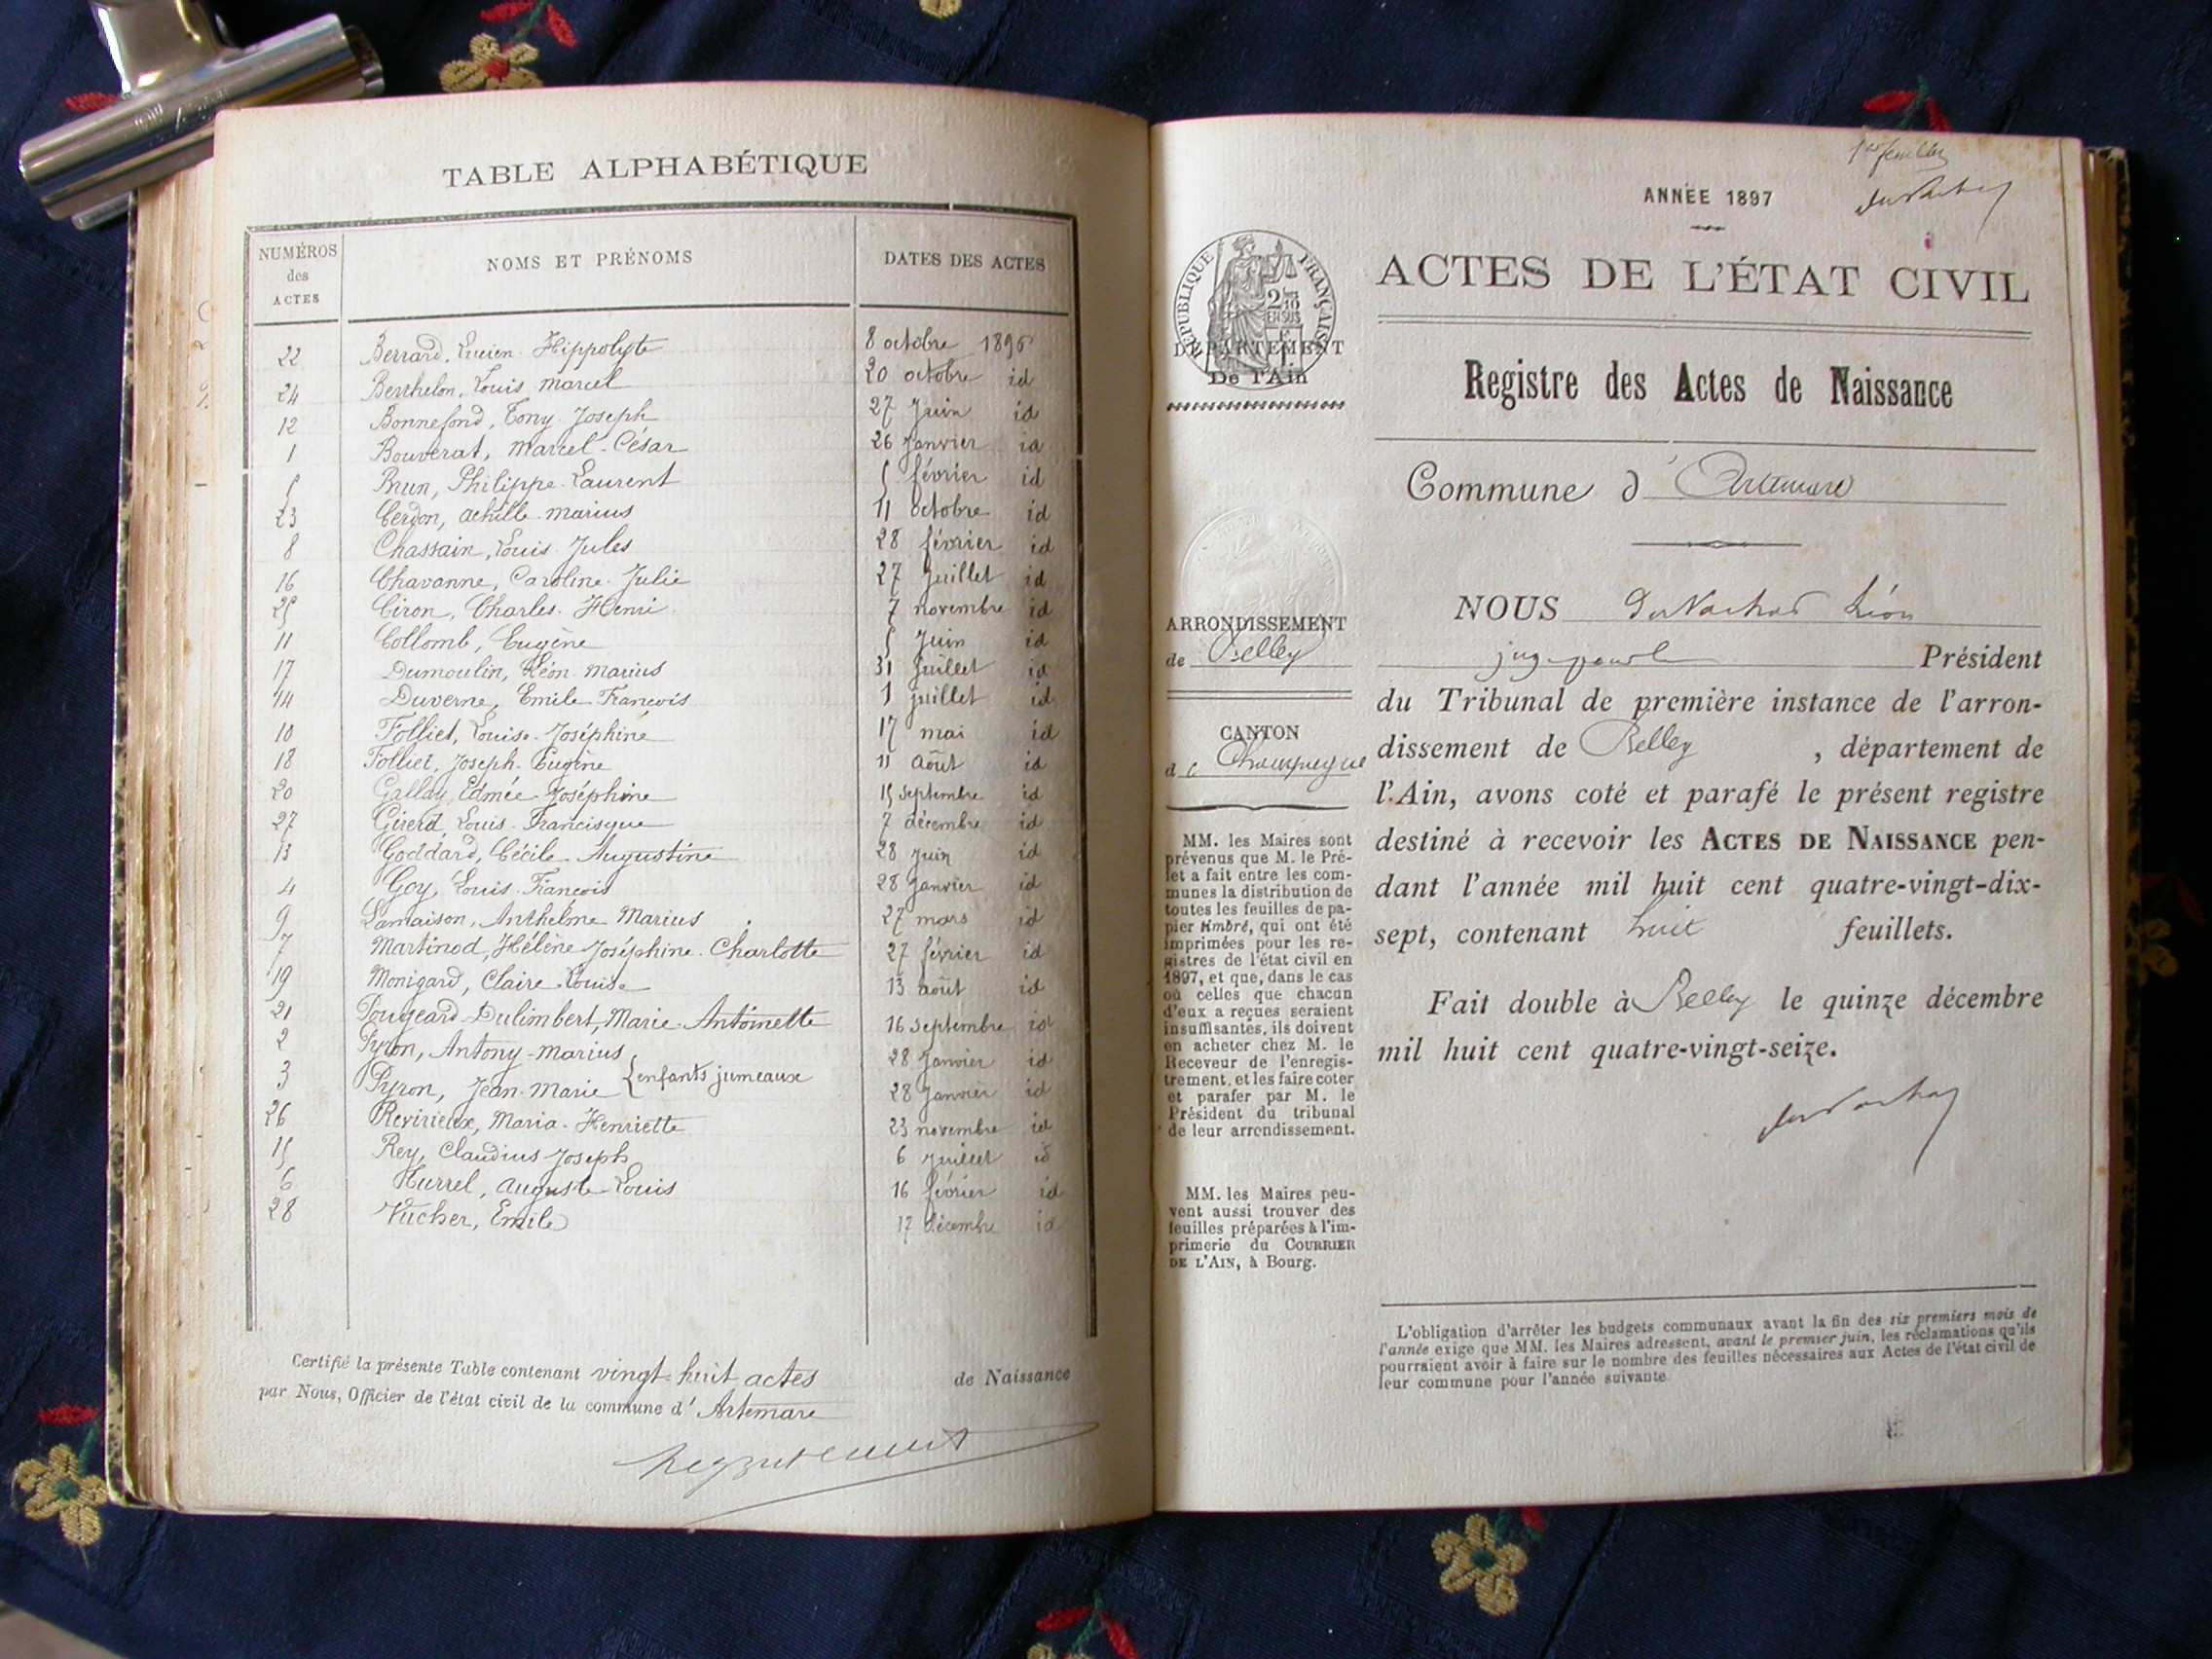 TABLE ALPHABÉTIQUE
NUMÉROS des ACTES NOMS ET PRÉNOMS DATES DES ACTES
22 Berrard, Lucien Hippolyte 8 octobre 1896
24 Berthelon, Louis Marcel 20 octobre id
12 Bonnefond, Tony Joseph 27 Juin id
1 Bouverat, Marcel César 26 Janvier id
5 Brun, Philippe Laurent 5 février id
23 Cerdon, Achille Marius 11 octobre id
8 Chassain, Louis Jules 28 février id
16 Chavanne, Caroline Julie 27 Juillet id
25 Ciron, Charles Henri 7 novembre id
11 Collomb, Eugène 5 Juin id
17 Dumoulin, Léon Marius 31 Juillet id
14 Duverne, Emile François 1 juillet id
10 Folliet, Louise Joséphine 17 mai id
18 Folliet, Joseph Eugène 11 Août id
20 Gallay, Edmée Joséphine 15 septembre id
27 Girerd, Louis Francisque 7 décembre id
13 Goddard, Cécile Augustine 28 Juin id
4 Goy, Louis François 28 Janvier id
9 Lamaison, Anthelme Marius 27 mars id
7 Martinod, Hélène Joséphine Charlotte 27 février id
19 Monigard, Claire Louise 13 août id
21 Pougeard-Dulimbert, Marie Antoinette 16 septembre id
2 Pyron, Antony-Marius 28 Janvier id
{enfants jumeaux
3 Pyron, Jean-Marie 28 Janvier id
26 Revirieux, Maria-Henriette 23 novembre id
15 Rey, Claudius Joseph 6 Juillet id
6 Turrel, Auguste Louis 16 février id
28 Vucher, Emile 12 décembre id
Certifié la présente Table contenant vingt-huit actes de Naissance
par Nous, Officier de l'état civil de la commune d' Artemare
1er feuillet
ANNÉE 1897
ACTES DE L'ÉTAT CIVIL
Registre des Actes de Naissance
Commune d' Artemare
RÉPUBLIQUE FRANÇAISE
2/10 EN SUS
DÉPARTEMENT
De l'Ain
ARRONDISSEMENT
de Belley
CANTON
de Champagne
MM. les Maires sont
prévenus que M. le Pré-
fet a fait entre les com-
munes la distribution de
toutes les feuilles de pa-
pier timbré, qui ont été
imprimées pour les re-
gistres de l'état civil en
1897, et que, dans le cas
où celles que chacun
d'eux a reçues seraient
insuffisantes, ils doivent
en acheter chez M. le
Receveur de l'enregis-
trement, et les faire coter
et parafer par M. le
Président du tribunal
de leur arrondissement.
MM. les Maires peu-
vent aussi trouver des
feuilles préparées à l'im-
primerie du COURRIER
DE L'AIN, à Bourg.
NOUS Léon
juge pour le Président
du Tribunal de première instance de l'arron-
dissement de Belley , département de
l'Ain, avons coté et parafé le présent registre
destiné à recevoir les ACTES DE NAISSANCE pen-
dant l'année mil huit cent quatre-vingt-dix-
sept, contenant huit feuillets.
Fait double à Belley le quinze décembre
mil huit cent quatre-vingt-seize.
L'obligation d'arrêter les budgets communaux avant la fin des six premiers mois de
l'année exige que MM. les Maires adressent, avant le premier juin, les réclamations qu'ils
pourraient avoir à faire sur le nombre des feuilles nécessaires aux Actes de l'état civil de
leur commune pour l'année suivante